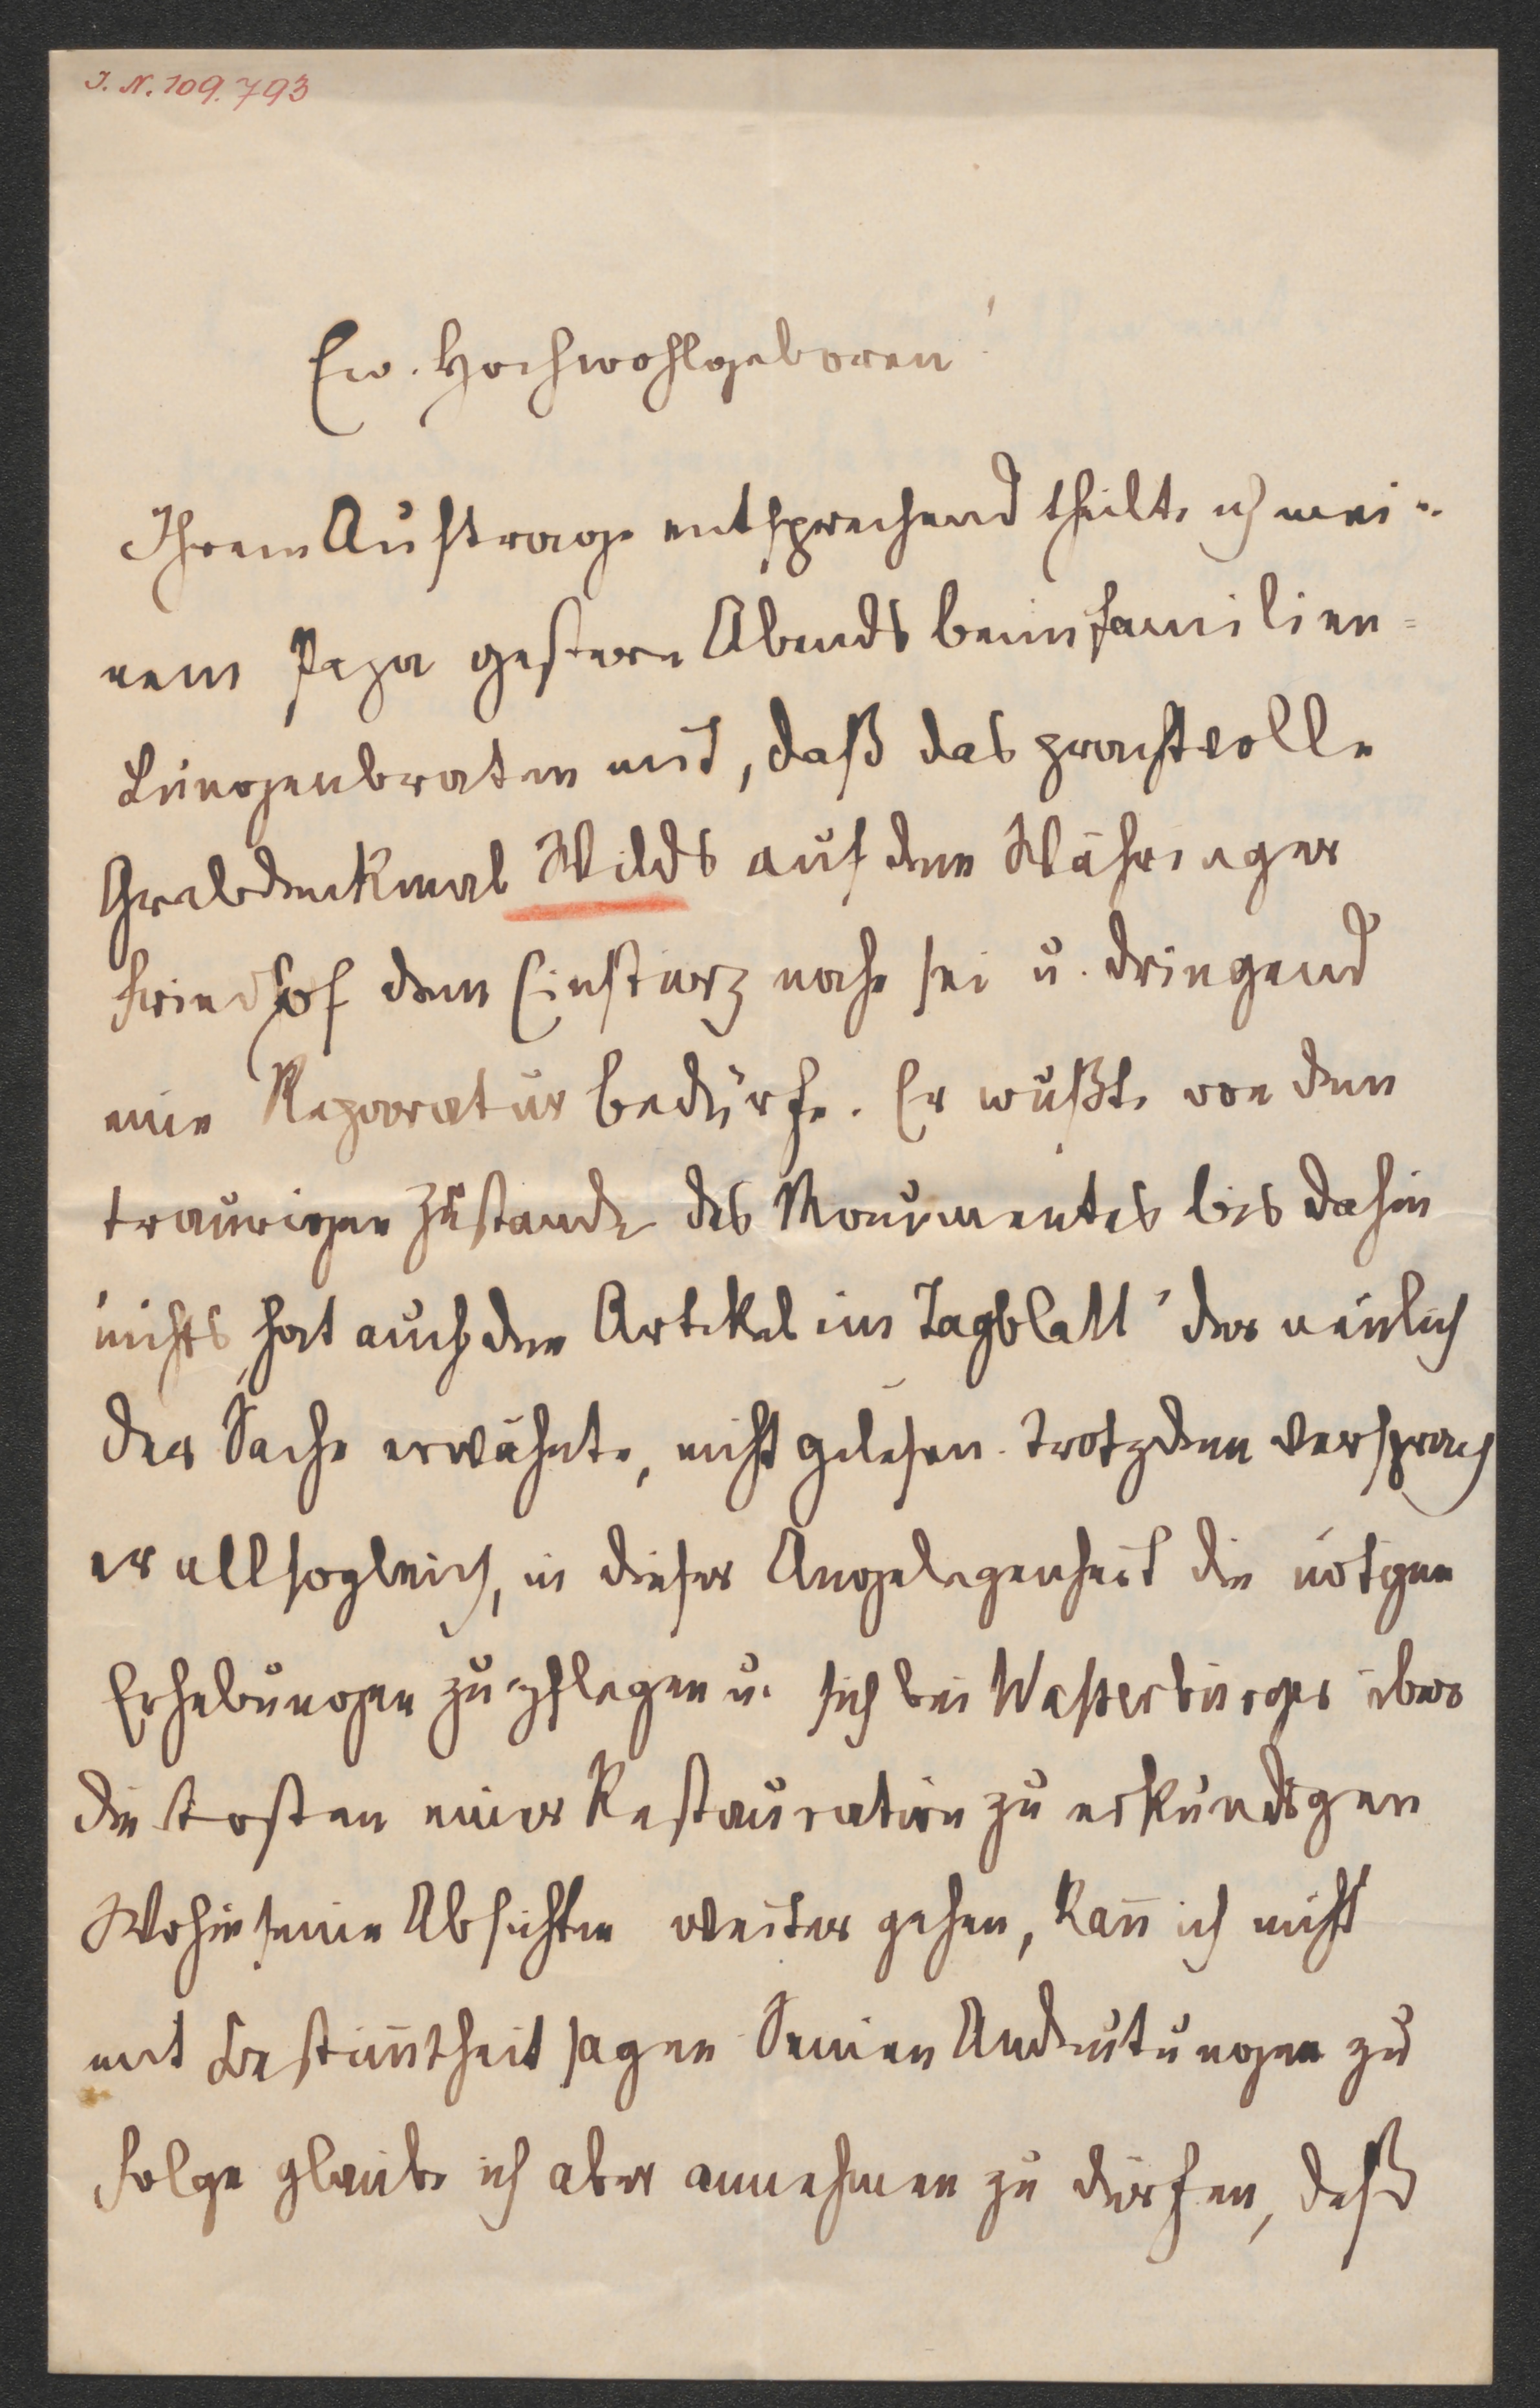 J. N. 109.793
Ew. Hochwohlgeboren!
Ihrem Auftrage entsprechend theilte ich mei-
nem Papa gestern Abends beim Familien-
Lungenbraten mit, daß das prachtvolle
Grabdenkmal Wilds auf dem Währinger
Friedhof dem Einsturz nahe sei u. dringend
eine Reparatur bedürfe. Er wußte von dem
traurigen Zustande des Monumentes bis dahin
nichts, hat auch den Artikel im Tagblatt, der neulich
der Sache erwähnte, nicht gelesen. Trotzdem versprach
er allsogleich, in dieser Angelegenheit die nötigen
Erhebungen zu pflegen u. sich bei Wasserburger über
die Kosten einer Restauration zu erkundigen
Wohin seine Absichten weiter gehen, kan̄ ich nicht
mit Bestim̄theit sagen Seinen Andeutungen zu
Folge glaube ich aber annehmen zu dürfen, daß